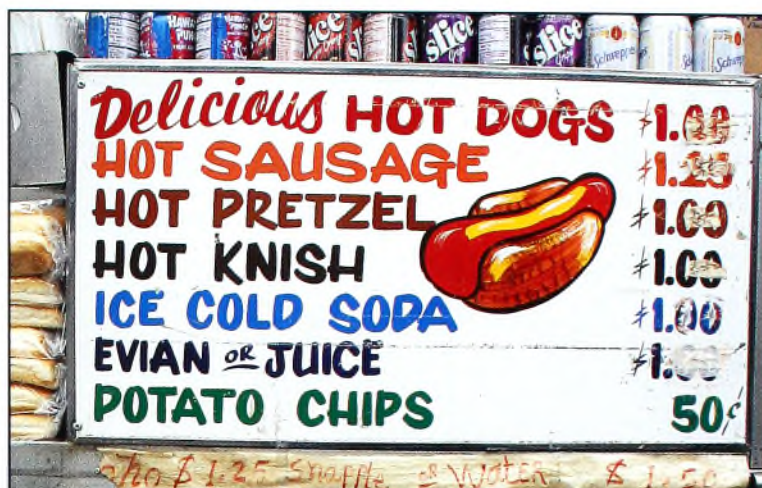 HAWAIIAN PUNCH slice slice slice slice Schweppes Schweppes
Delicious HOT DOGS $1.00
HOT SAUSAGE $1.25
HOT PRETZEL $1.00
HOT KNISH $1.00
ICE COLD SODA $1.00
EVIAN OR JUICE
POTATO CHIPS 50¢
$1.25 Snapple OR WATER $1.50